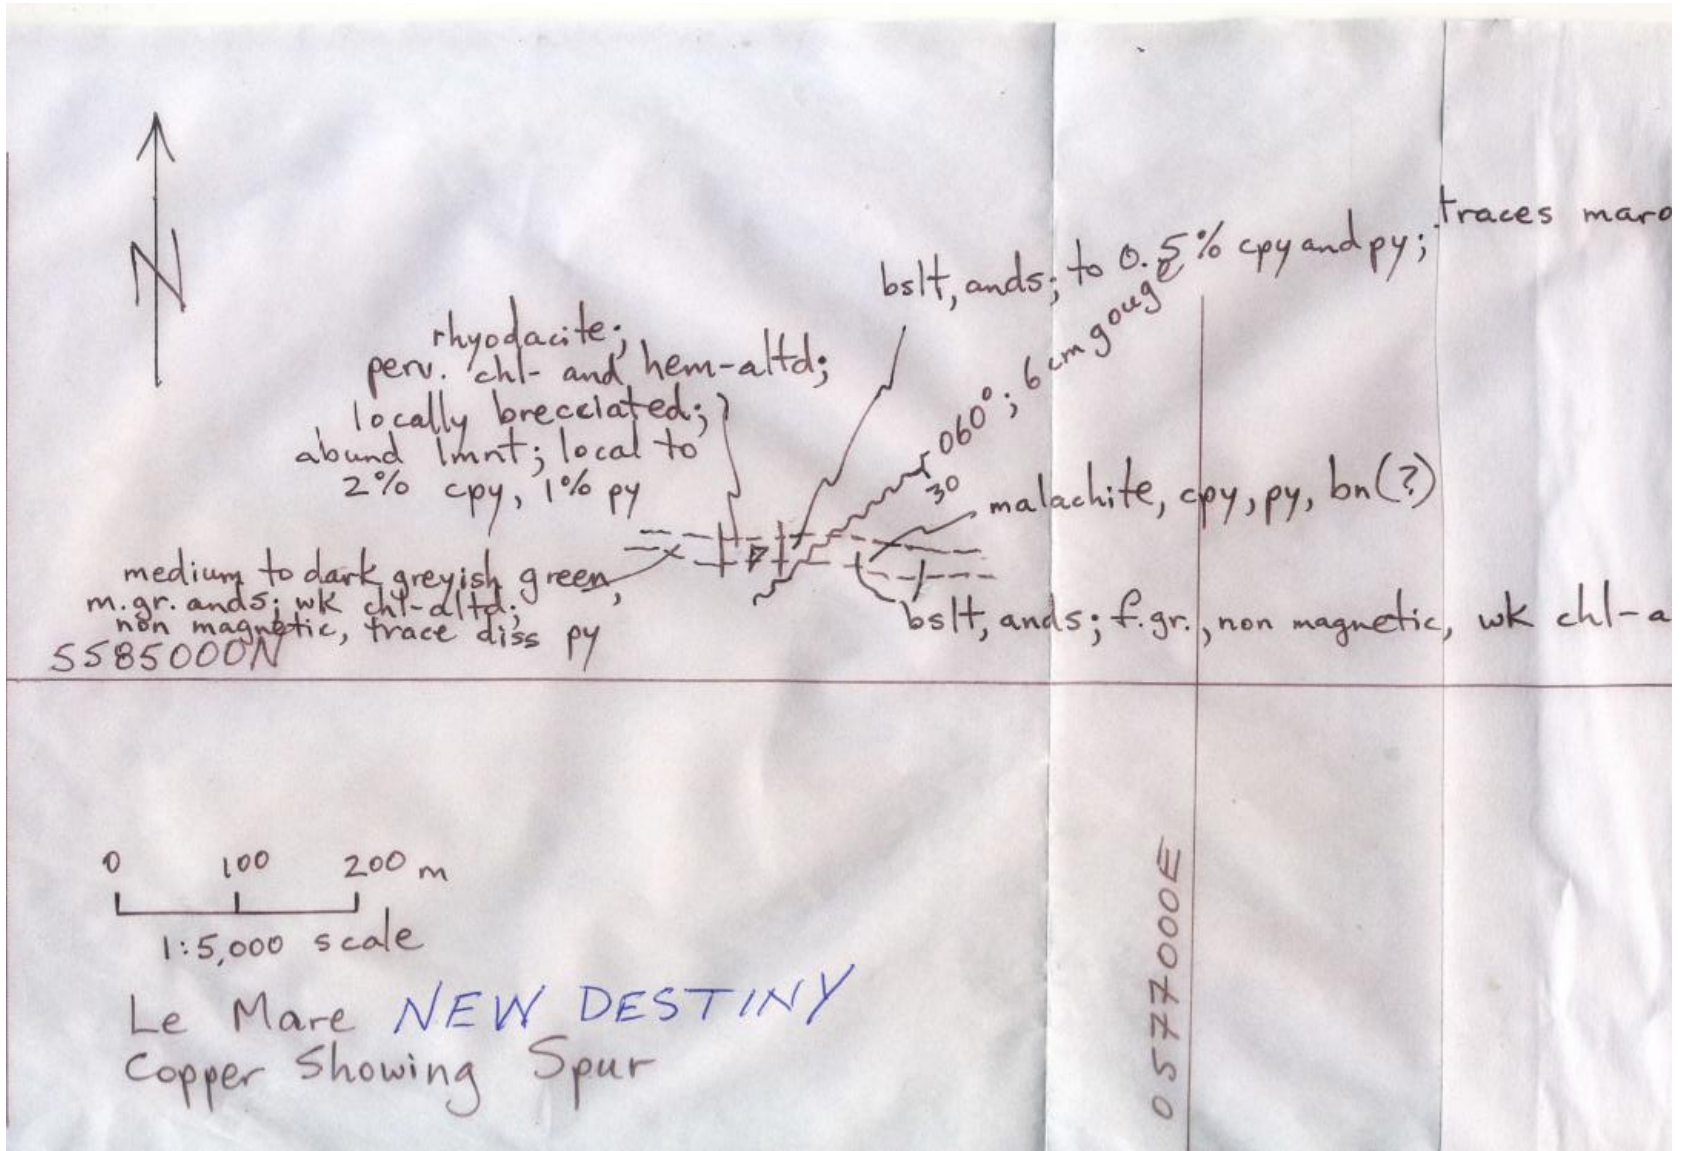 N
traces maro
bslt, ands; to 0.5% cpy and py;
060°; 6 cm gouge
30
rhyodacite;
perv. chl- and hem-altd;
locally brecciated;
abund lmnt; local to
2% cpy, 1% py
malachite, cpy, py, bn(?)
medium to dark greyish green,
m.gr. ands; wk chl-altd;
non magnetic, trace diss py
bslt, ands; f.gr., non magnetic, wk chl-a
5585000N
0577000E
0 100 200 m
1:5,000 scale
Le Mare NEW DESTINY
Copper Showing Spur